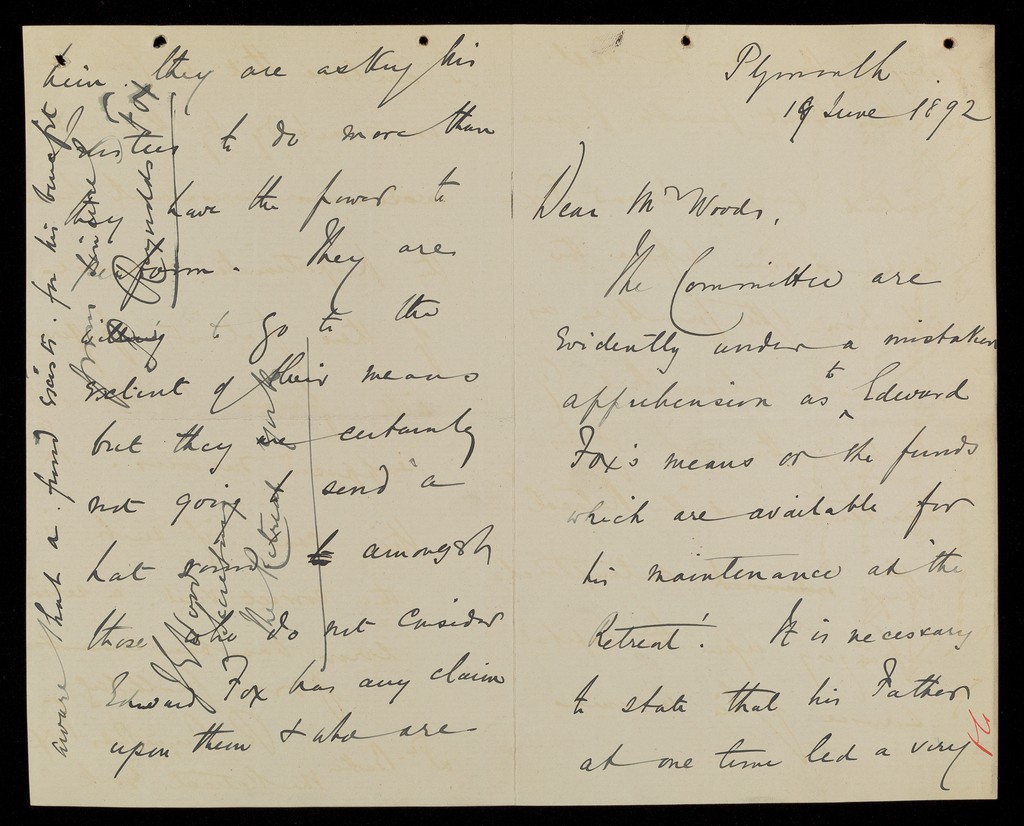 Plymouth
19 June 1892
Dear Mr Woods,
The Committee are
evidently under a mistaken
apprehension as to Edward
Fox's means or the funds
which are available for
his maintenance at "the
Retreat". It is necessary
to state that his Father
at one time led a very
him. They are asking his
trustees to do more than
they have the power to
perform. They are
willing to go to the
extent of their means
but they are certainly
not going to send a
hat round amongst
those who do not consider
Edward Fox has any claim
upon them & who are
aware that a fund exists for his benefit
yours sincerely
Reynolds Fox
J Woods
Secretary
The Retreat York